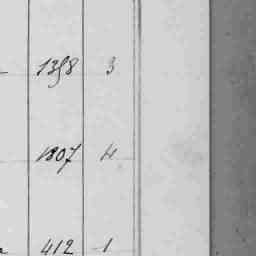 1398 3
1807 4
412 1